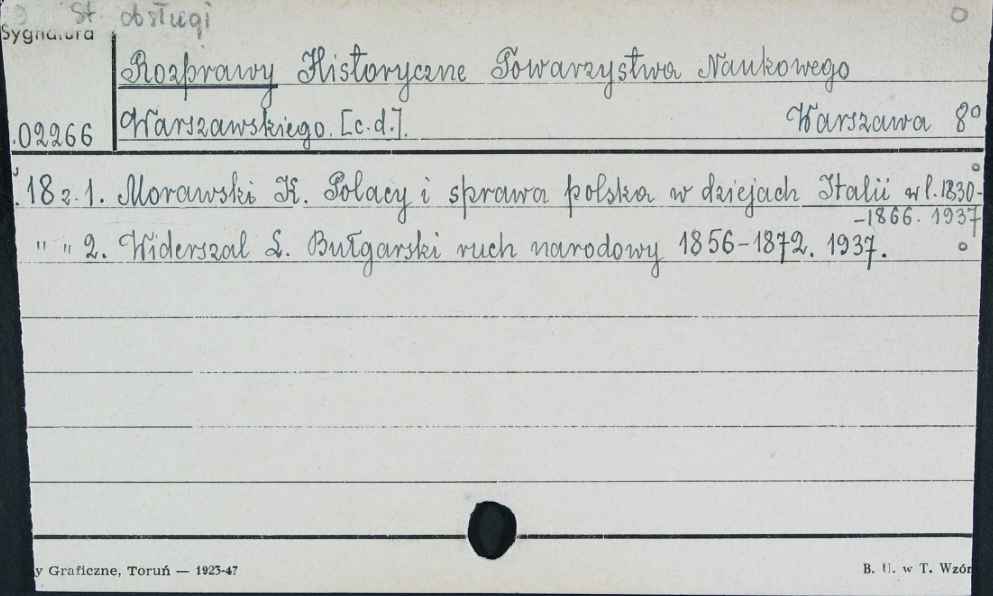 St. obsługi
Sygnatura
Rozprawy Historyczne Towarzystwa Naukowego
.02266 Warszawskiego. [c.d.]. Warszawa 8°
18 z. 1. Morawski K. Polacy i sprawa polska w dziejach Italii w l. 1830-
-1866. 1937
" " 2. Widerszal L. Bułgarski ruch narodowy 1856-1872. 1937.
y Graficzne, Toruń — 1923-47 B. U. w T. Wzór